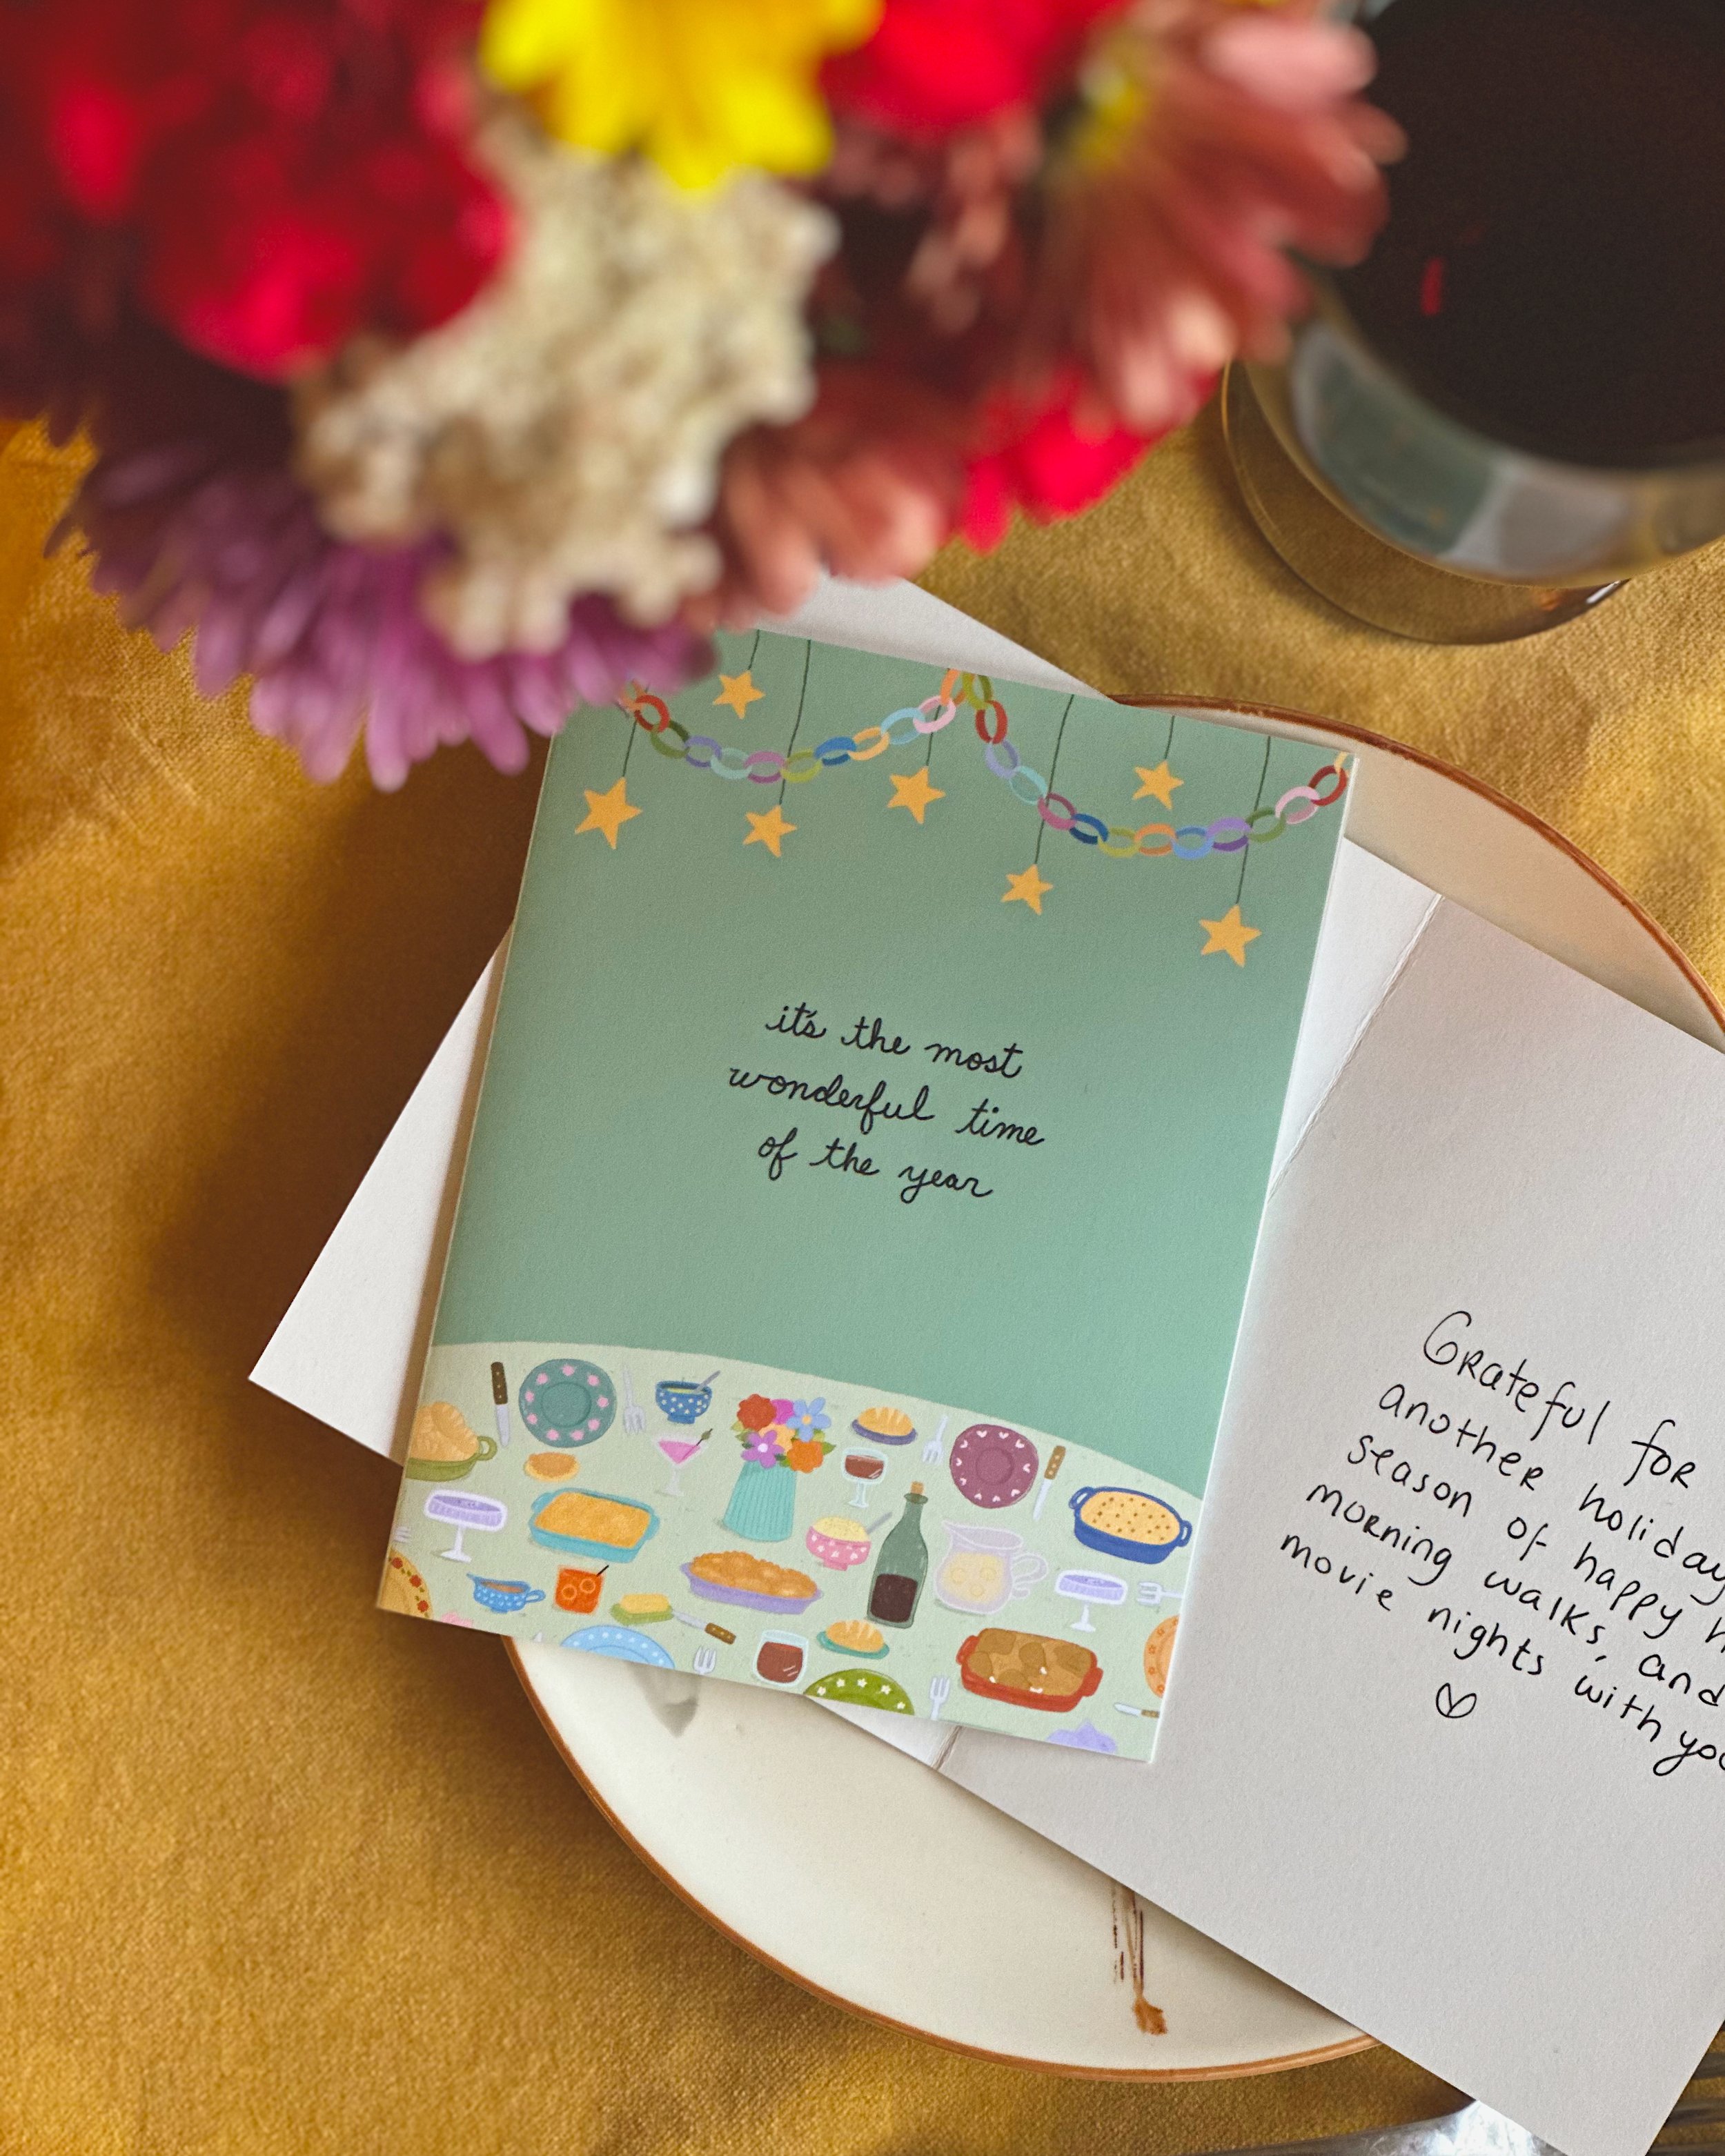 it's the most
wonderful time
of the year
Grateful for
another holiday
season of happy
morning walks, and
movie nights with